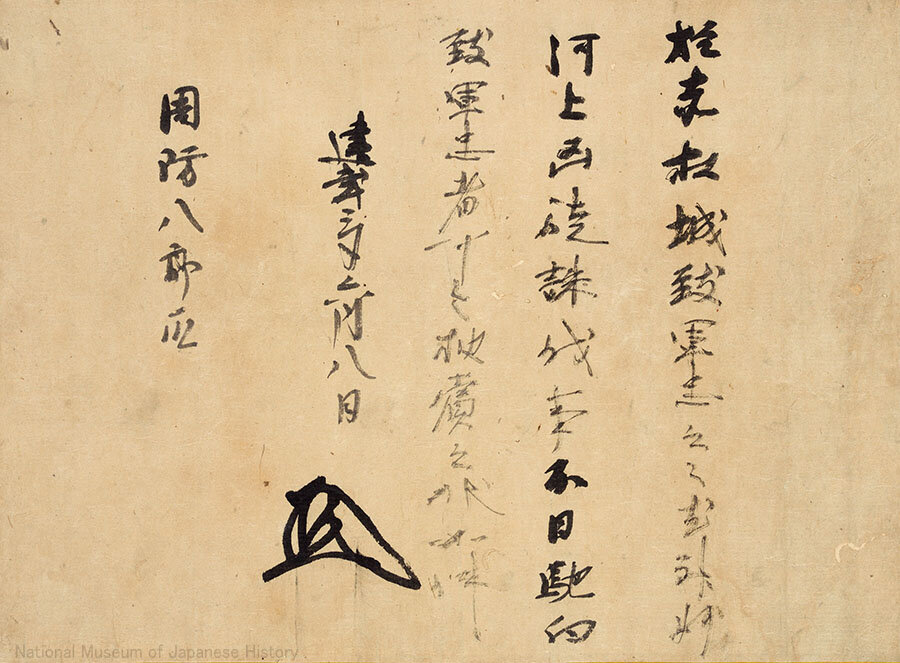 於赤松城致軍忠云々尤神妙
河上凶徒誅伐事不日馳向
致軍忠者可令抽賞之状如件
建武三年六月八日
周防八郎殿
National Museum of Japanese History